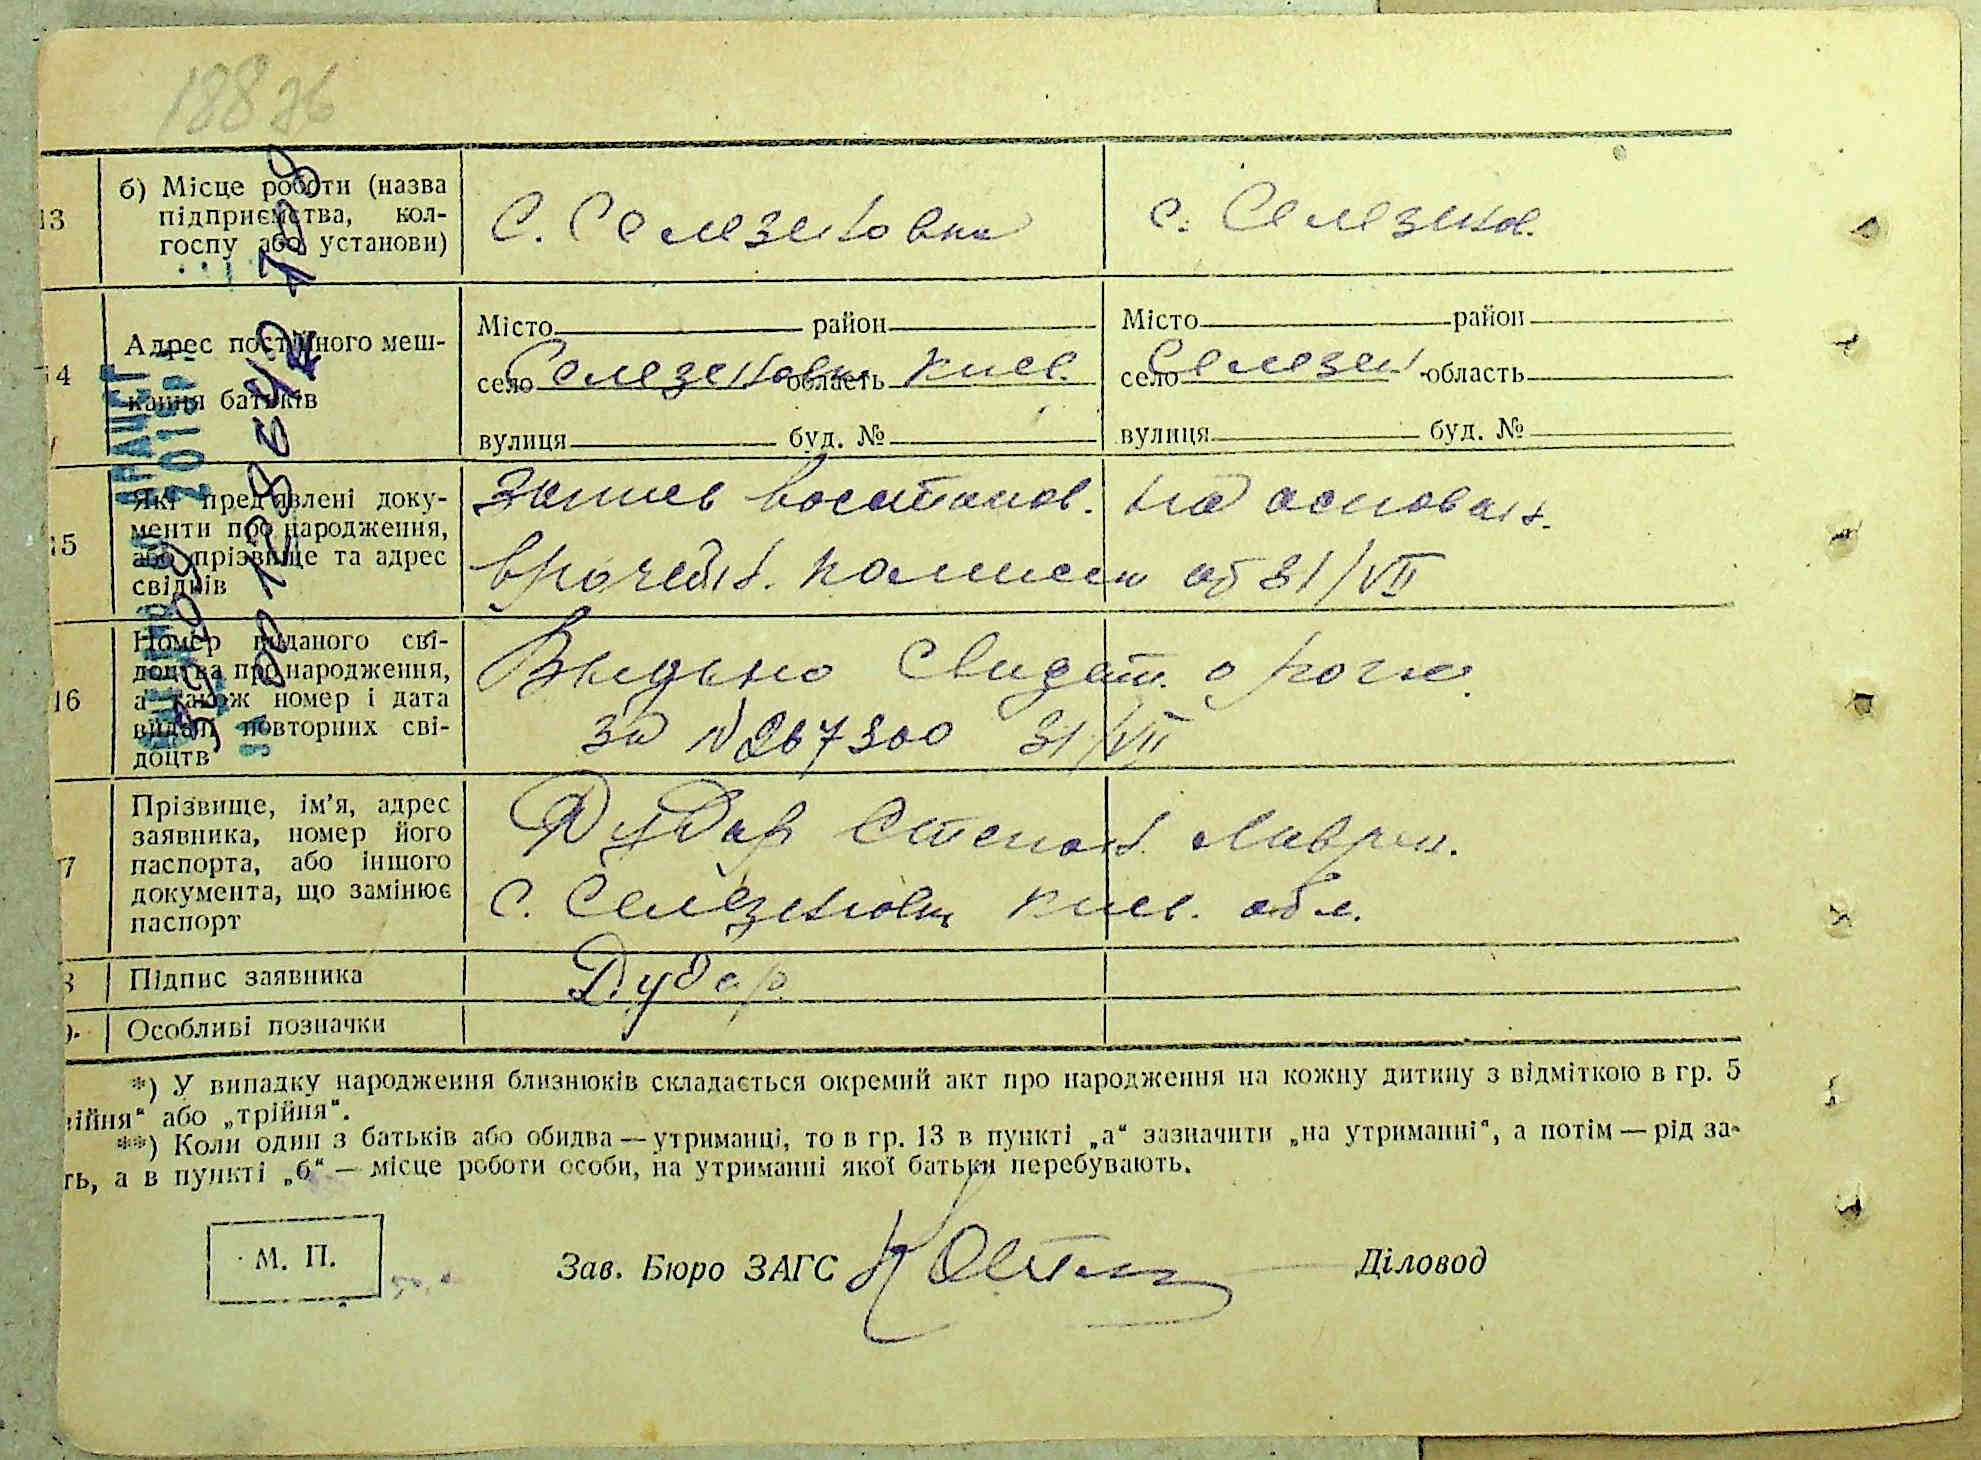 188 зв
13 б) Місце роботи (назва
підприємства, кол-
госпу або установи)
С. Селезеновка
с. Селезнов.
14 Адрес постійного меш-
кання батьків
Місто район
село Селезеновка область Киев.
вулиця буд. №
Місто район
село Селезен область
вулиця буд. №
15 Які пред'явлені доку-
менти про народження,
або прізвище та адрес
свідків
Запись востанов. на основан.
врачебн. комиссии от 31/VII
16 Номер виданого сві-
доцтва про народження,
а також номер і дата
видачі повторних сві-
доцтв
Выдано Свидет. о рожд.
за № 267300 31/VII
17 Прізвище, ім'я, адрес
заявника, номер його
паспорта, або іншого
документа, що замінює
паспорт
Дубар Степан Лаврен.
с. Селезеновц Киев. обл.
8 Підпис заявника
Дубар
9. Особливі позначки
*) У випадку народження близнюків складається окремий акт про народження на кожну дитину з відміткою в гр. 5
ійня" або „трійня".
**) Коли один з батьків або обидва — утриманці, то в гр. 13 в пункті „а" зазначити „на утриманні", а потім — рід за-
ть, а в пункті „б" — місце роботи особи, на утриманні якої батьки перебувають.
М. П.
Зав. Бюро ЗАГС
Діловод